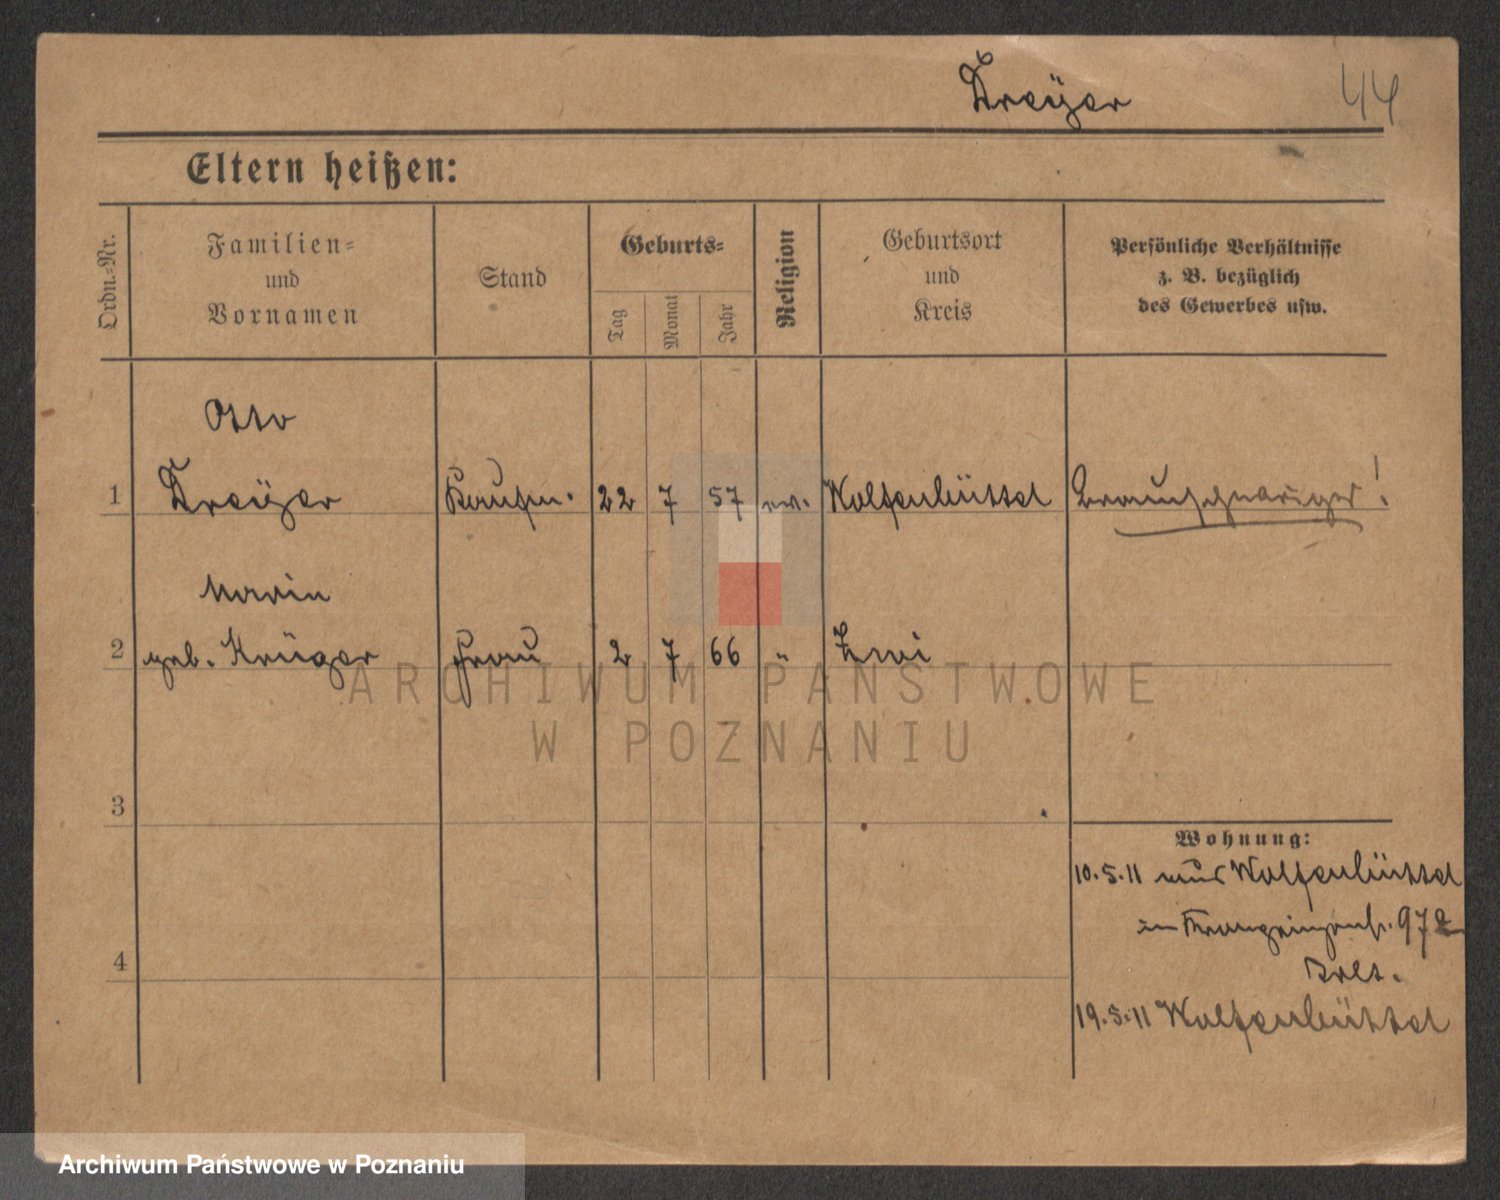 Dreÿer 44
Eltern heißen:
Ordn.-Nr.
Familien-
und
Vornamen
Stand
Geburts-
Tag
Monat
Jahr
Religion
Geburtsort
und
Kreis
Persönliche Verhältnisse
z. B. bezüglich
des Gewerbes usw.
Otto
1 Dreÿer Kaufm. 22 7 57 ev. Wolfenbüttel Braunschweiger!
Marie
2 geb. Krüger Frau 2 7 66 "
3
4
Wohnung:
10.5.11 aus Wolfenbüttel
in 97
19.5.11 Wolfenbüttel
ARCHIWUM PAŃSTWOWE
W POZNANIU
Archiwum Państwowe w Poznaniu